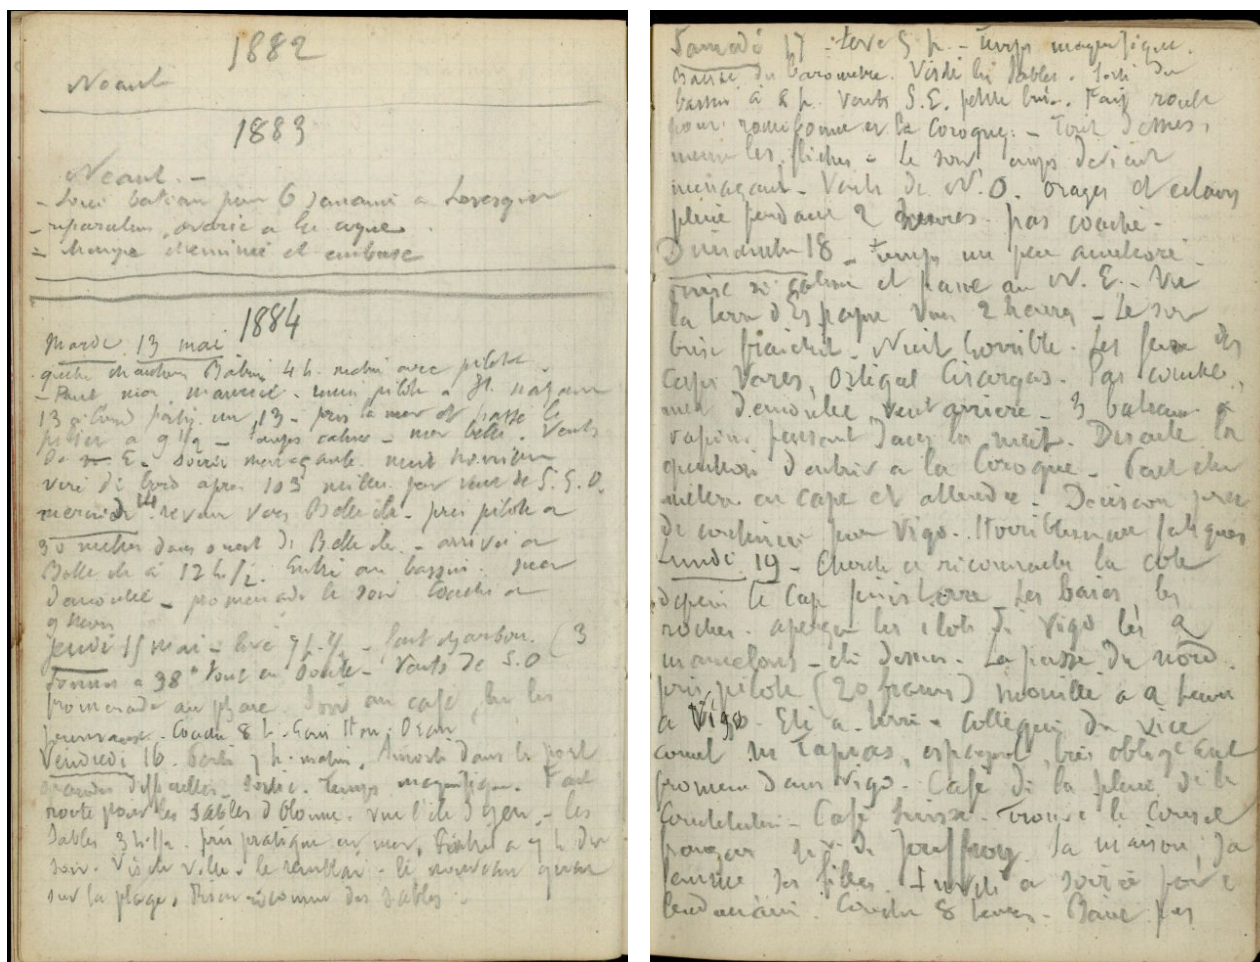 1882
Neant
1883
Neant. -
- bateau pour 6 a
- reparation, avarie a la coque.
- change cheminée et embase
1884
Mardi 13 mai
quitte 4 h. matin avec pilote.
pilote a St. nazaire
13 - pris la mer et passé le
pilier a 9 1/2 - temps calme - mer belle. Vents
De E. Soirée menaçante. nuit horrible
viré de bord apres 103 milles par vent de S. S. O.
mercredi 14. revenu vers Belle ile. pris pilote a
30 milles dans ouest de Belle ile. - arrivée a
Belle ile à 12 h 1/2. Entré au bassin. mer
demontée - promenade le soir Couché a
9 heures
Jeudi 15 mai - levé 7 h. 1/2 - fait charbon. (3
tonnes a 38 Vents de S. O
promenade au phare. Soir au café, lu les
journaux. Couché 8 h.
Vendredi 16. 7 h. matin, dans le port
grandes difficultes. Sortie. Temps magnifique. Fait
route pour les Sables d'Olonne. vue l'ile d'Yeu. - les
Sables 3 h 1/2. pris pratique en mer, Entré a 7 h du
soir. Visité ville. le remblai - le nouveau quai
sur la plage. des Sables.
Samedi 17 - levé 5 h. - Temps magnifique.
du barometre. Visité les Sables. Sorti du
bassin à 8 h. Vents S.E. petite brise. Fait route
pour la Corogne. - Tout dessus,
meme les fleches - Le soir temps devient
menaçant. Vents de N. O. orages et eclairs
pluie pendant 2 heures. pas couché.
Dimanche 18 - temps un peu amelioré.
brise se calme et passe au N. E. - Vue
la terre d'Espagne vers 2 heures - Le soir
brise fraichit. Nuit horrible. Les feux des
caps Vares, Ortigal Cisargas. Pas couché,
mer demontée, vent arriere - 3 bateaux a
vapeur passent dans la nuit. Discute la
question d'entrer a la Corogne - Faut il
mettre en cape et attendre. Decision prise
de continuer pour Vigo. Horriblement fatigués
Lundi 19 - Cherche a reconnaitre la côte
depuis le Cap finisterre les baies, les
rochers. aperçu les ilots de Vigo les 2
mamelons - dessus. La passe du nord.
pris pilote (20 francs) mouillé a 2 heures
a Vigo. Eté a terre - Collegue du vice
consul Mr Tapias, espagnol, tres obligeant
promené dans Vigo. Café de la place de la
Constitution - Café Suisse. Trouvé le Consul
français Mr de Jouffroy. Sa maison, sa
femme ses filles. Invité a soirée pour le
lendemain. Couché 8 heures.